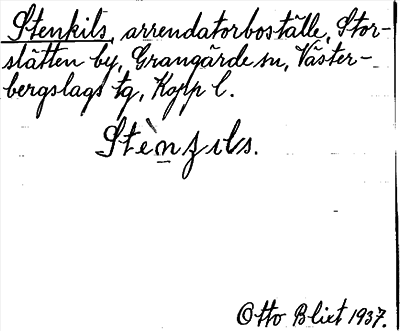 Stenkils, arrendatorboställe, Stor-
slätten by, Grangärde sn, Väster-
bergslags tg, Kopp l.
Stènzils.
Otto Blixt 1937.